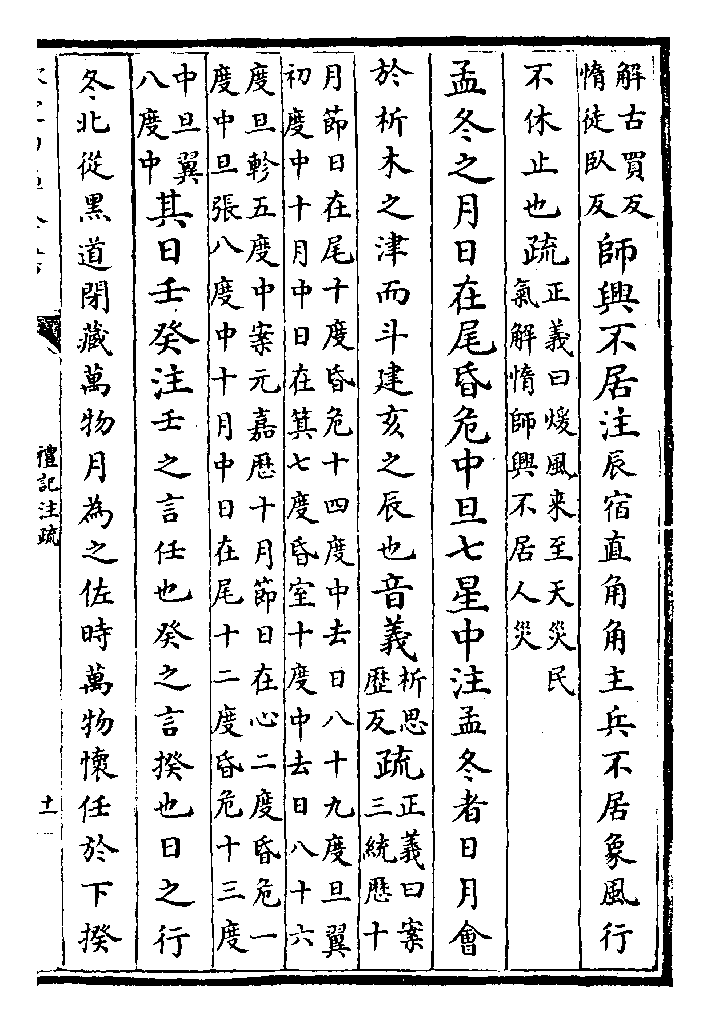 解古買反
惰徒臥反
師興不居注辰宿直角角主兵不居象風行
不休止也疏
正義曰煖風來至天災民
氣解惰師興不居人災
孟冬之月日在尾昏危中旦七星中注孟冬者日月會
於析木之津而斗建亥之辰也音義
析思
歷反
疏
正義曰案
三統歷十
月節日在尾十度昏危十四度中去日八十九度旦翼
初度中十月中日在箕七度昏室十度中去日八十六
度旦軫五度中案元嘉歷十月節日在心二度昏危一
度中旦張八度中十月中日在尾十二度昏危十三度
中旦翼
八度中
其日壬癸注壬之言任也癸之言揆也日之行
冬北從黑道閉藏萬物月為之佐時萬物懷任於下揆
禮記注疏
十一